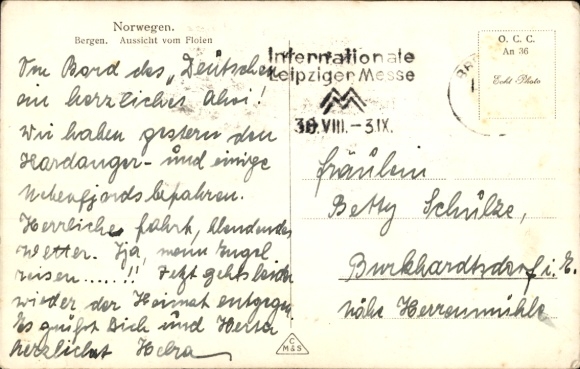 Norwegen.
Bergen. Aussicht vom Floien
Von Bord des „Deutschen
ein herzliches Ahoi!
Wir haben gestern den
Hardanger- und einige
Nebenfjords befahren.
Herrliche Fahrt, blendendes
Wetter. Tja, wenn Engel
reisen......!! Jetzt gehts leider
wieder der Heimat entgegen
Es grüßt Dich und Herta
herzlichst
Internationale
Leipziger Messe
30.VIII.—3.IX.
O. C. C.
An 36
Echt Photo
Fräulein
Betty Schülze,
Burkhardtsdorf i. E.
Nähe Herrenmühle
C
M&S